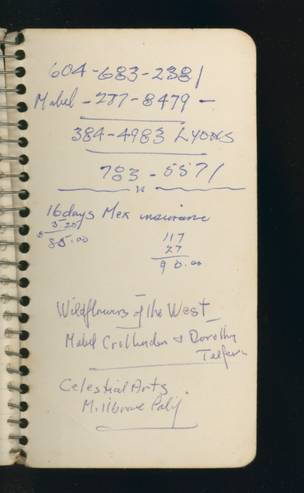 604-683-2381
Mabel - 277-8479 -
384-4983 Lyons
783-5571
16 days Mex insurance
117
27
90.00
Wildflowers of the West
Mabel Crittenden & Dorothy
Telfer
Celestial Arts
Millbrae Calif.